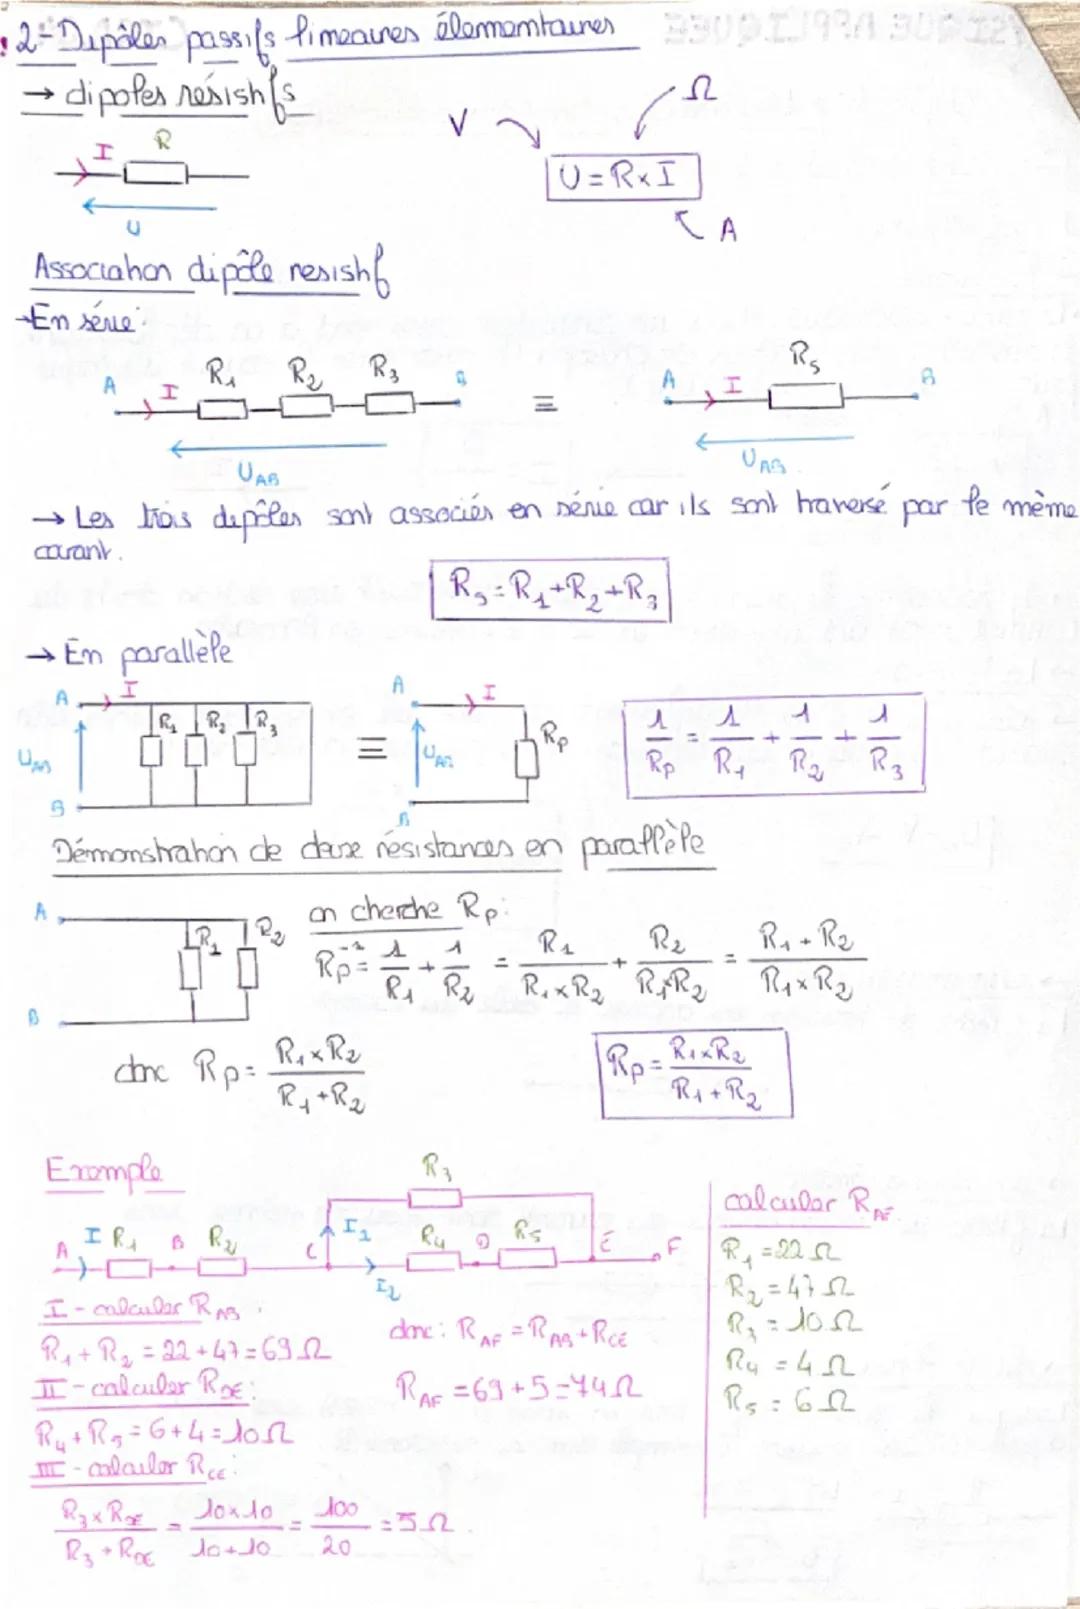 2- Dipôles passifs limeaires élementaires
→ dipoles résistifs
I R
U
V Ω
U = R×I
A
Association dipôle resistif
→ En série:
A I R₁ R₂ R₃ B ≡ A I Rs B
U_AB U_AB
→ Les trois dipôles sont associés en série car ils sont traversé par le même
courant.
Rs = R₁ + R₂ + R₃
→ En parallèle
A I R₁ R₂ R₃ U_AB B ≡ A I Rp U_AB B
1/Rp = 1/R₁ + 1/R₂ + 1/R₃
Démonstration de deux résistances en parallèle
A R₁ R₂ B
on cherche Rp:
Rp⁻¹ = 1/R₁ + 1/R₂ = R₁/(R₁×R₂) + R₂/(R₁×R₂) = (R₁+R₂)/(R₁×R₂)
donc Rp = (R₁×R₂)/(R₁+R₂)
Rp = (R₁×R₂)/(R₁+R₂)
Exemple
A I R₁ B R₂ C I₁ R₃ I₂ R₄ D R₅ E F
I - calculer R_AB:
R₁ + R₂ = 22 + 47 = 69 Ω
II - calculer R_DE:
R₄ + R₅ = 6 + 4 = 10 Ω
III - calculer R_CE:
(R₃×R_DE)/(R₃+R_DE) = (10×10)/(10+10) = 100/20 = 5 Ω
donc: R_AF = R_AB + R_CE
R_AF = 69 + 5 = 74 Ω
calculer R_AF
R₁ = 22 Ω
R₂ = 47 Ω
R₃ = 10 Ω
R₄ = 4 Ω
R₅ = 6 Ω